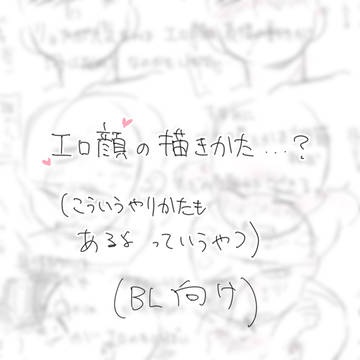 エロ顔の描きかた…?
(こういうやりかたも
あるよっていうやつ)
(BL向け)